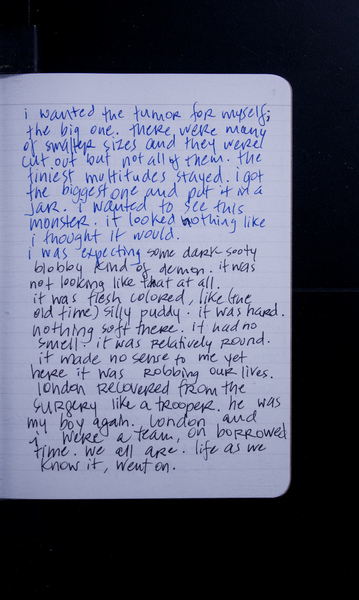 i wanted the tumor for myself;
the big one. there were many
of smaller sizes and they were
cut out but not all of them. the
tiniest multitudes stayed. i got
the biggest one and put it in a
jar. i wanted to see this
monster. it looked nothing like
i thought it would.
i was expecting some dark sooty
blobby kind of demon. it was
not looking like that at all.
it was flesh colored, like (the
old time) silly puddy. it was hard.
nothing soft there. it had no
smell. it was relatively round.
it made no sense to me yet
here it was robbing our lives.
london recovered from the
surgery like a trooper. he was
my boy again. london and
i were a team, on borrowed
time. we all are. life as we
know it, went on.